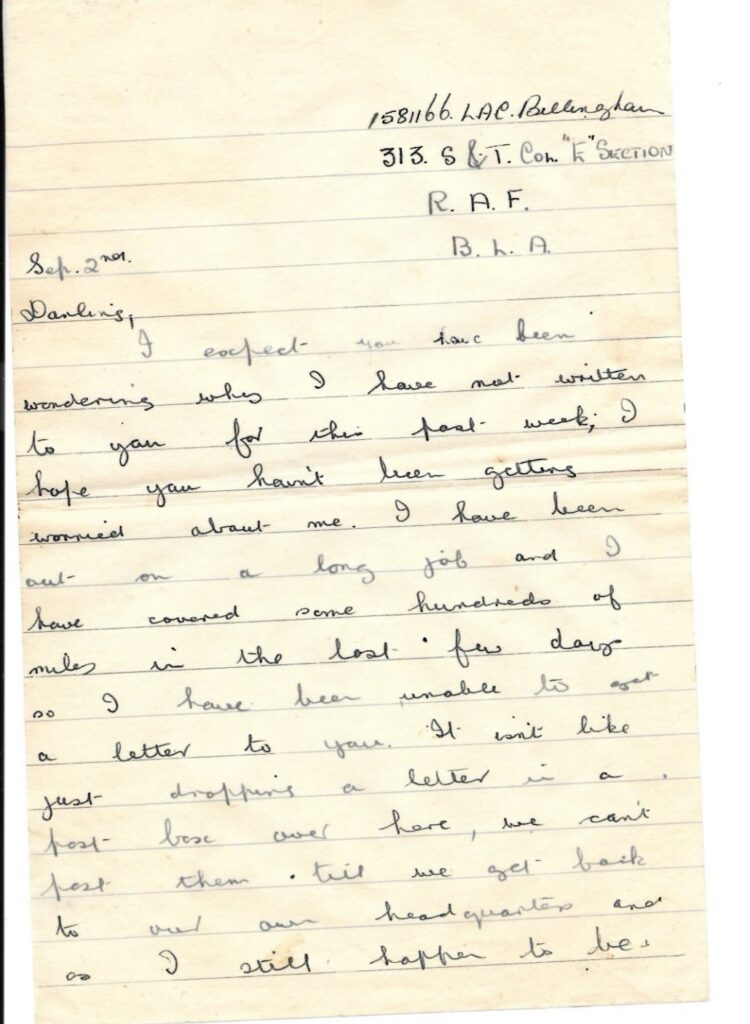 1581166. LAC. Bellingham
313. S & T. Col. "E" SECTION
R. A. F.
B. L. A.
Sep. 2nd.
Darling,
I expect you have been
wondering why I have not written
to you for this past week; I
hope you havn't been getting
worried about me. I have been
out on a long job and I
have covered some hundreds of
miles in the last few days
so I have been unable to get
a letter to you. It isn't like
just dropping a letter in a
post box over here, we can't
post them till we get back
to our own headquarters and
as I still happen to be